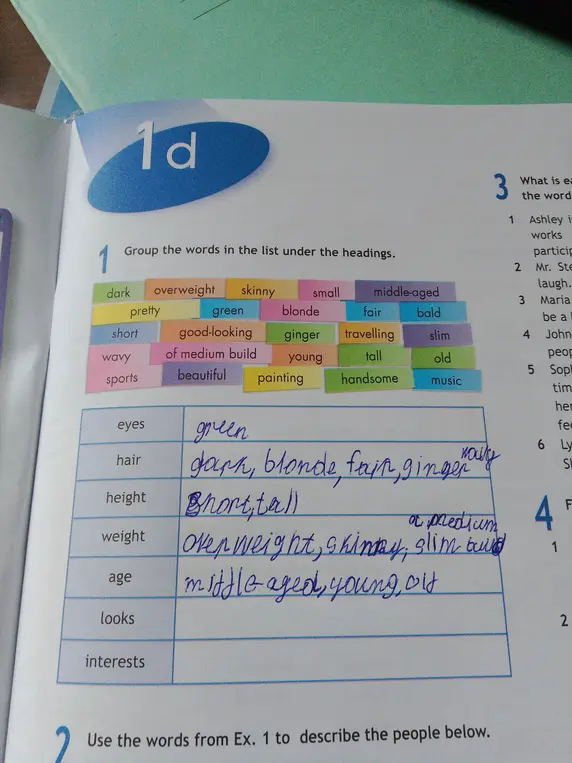 1d
1 Group the words in the list under the headings.
dark overweight skinny small middle-aged
pretty green blonde fair bald
short good-looking ginger travelling slim
wavy of medium build young tall old
sports beautiful painting handsome music
eyes green
hair dark, blonde, fair, ginger wavy
height short, tall
weight overweight, skinny, slim a medium build
age middle-aged, young, old
looks
interests
2 Use the words from Ex. 1 to describe the people below.
3 What is
the word
1 Ashley
works
2 Mr.
laugh.
3 Maria
be a
4 John
5
6
4
1
2